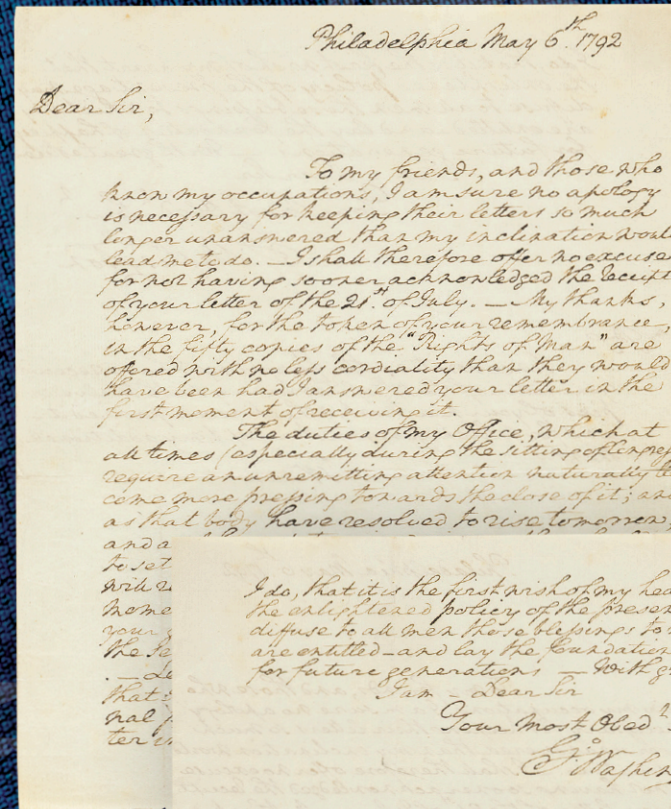 Philadelphia May 6th. 1792
Dear Sir,
To my friends, and those who
know my occupations, I am sure no apology
is necessary for keeping their letters so much
longer unanswered than my inclination woul
lead me to do. — I shall therefore offer no excuse
for not having sooner acknowledged the receipt
of your letter of the 21st. of July. — My thanks,
however, for the token of your remembrance,
in the fifty copies of the "Rights of Man" are
offered with no less cordiality than they would
have been had I answered your letter in the
first moment of receiving it.
The duties of my Office, which at
all times (especially during the sitting of Congress
require an unremitting attention naturally be
come more pressing towards the close of it; an
as that body have resolved to rise tomorrow,
and a
to set
will
mome
your
the se
. — Le
that
nal
ter in
I do, that it is the first wish of my hea
the enlightened policy of the presen
diffuse to all men those blessings to
are entitled — and lay the foundation
for future generations — With g
I am — Dear Sir
Your most Obedt.
Go Washin